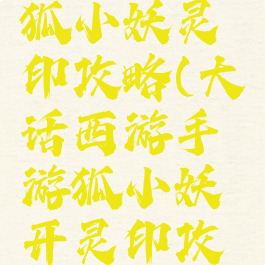 狐小妖灵
印攻略(大
话西游手
游狐小妖
开灵印攻